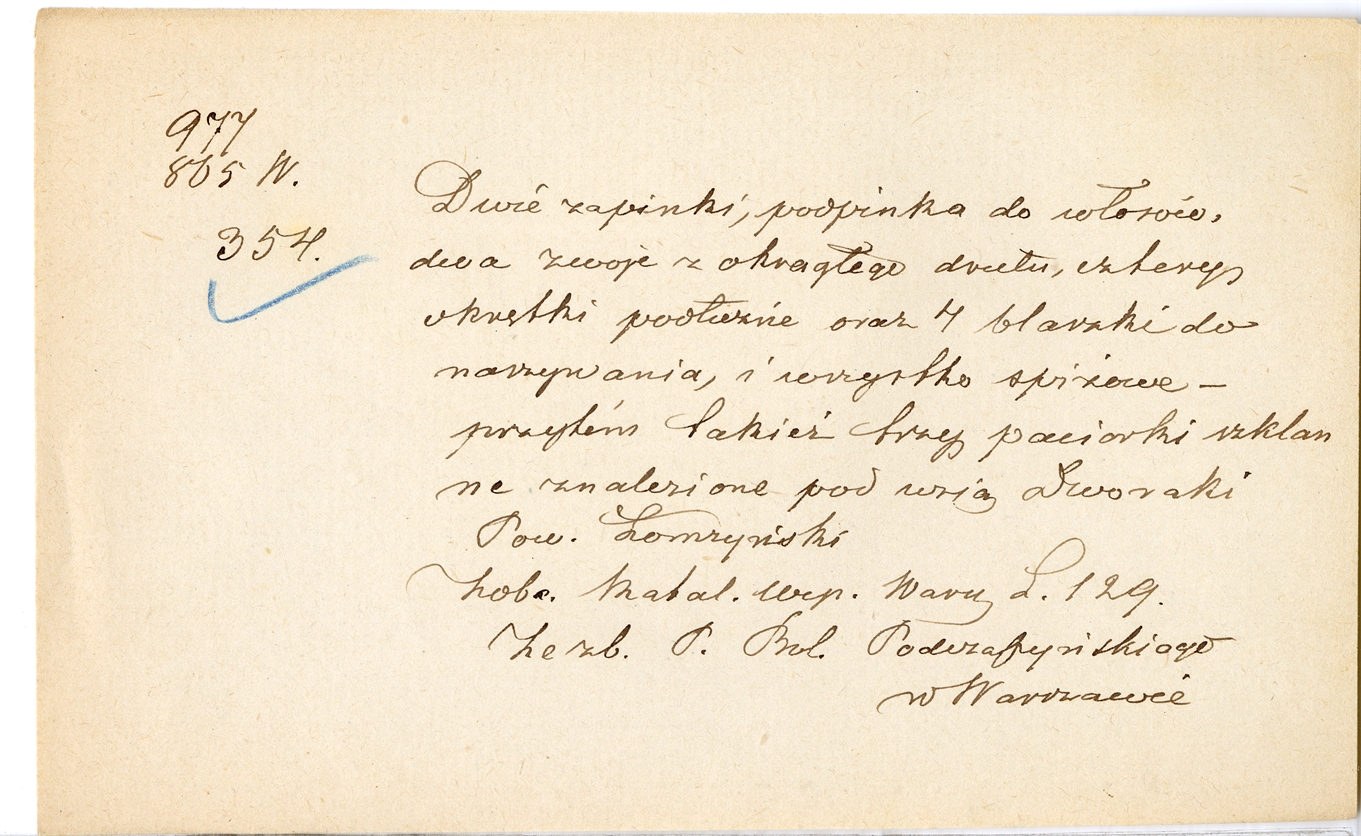 977
865 W.
354.
Dwie zapinki, podpinka do włosów,
dwa zwoje z okrągłego drutu, cztery
okrętki podłużne oraz 4 blaszki do
naszywania, i wszystko spiżowe –
przytém takież trzy paciorki szklan
ne znalezione pod wsią Dworaki
Pow. Łomżyński
Zob. Katal. wyp. Warsz. L. 129.
Ze zb. P. Bol. Podczaszyńskiego
w Warszawie